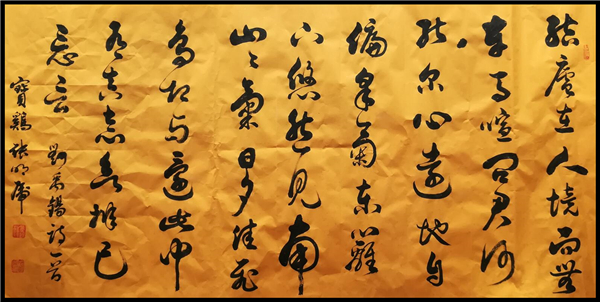 結廬在人境而無
車馬喧問君何
能尔心遠地自
偏采菊東籬
下悠然見南
山〻氣日夕佳飛
鳥相与還此中
有真意欲辨已
忘言
劉禹錫詩一首
寶鷄張明